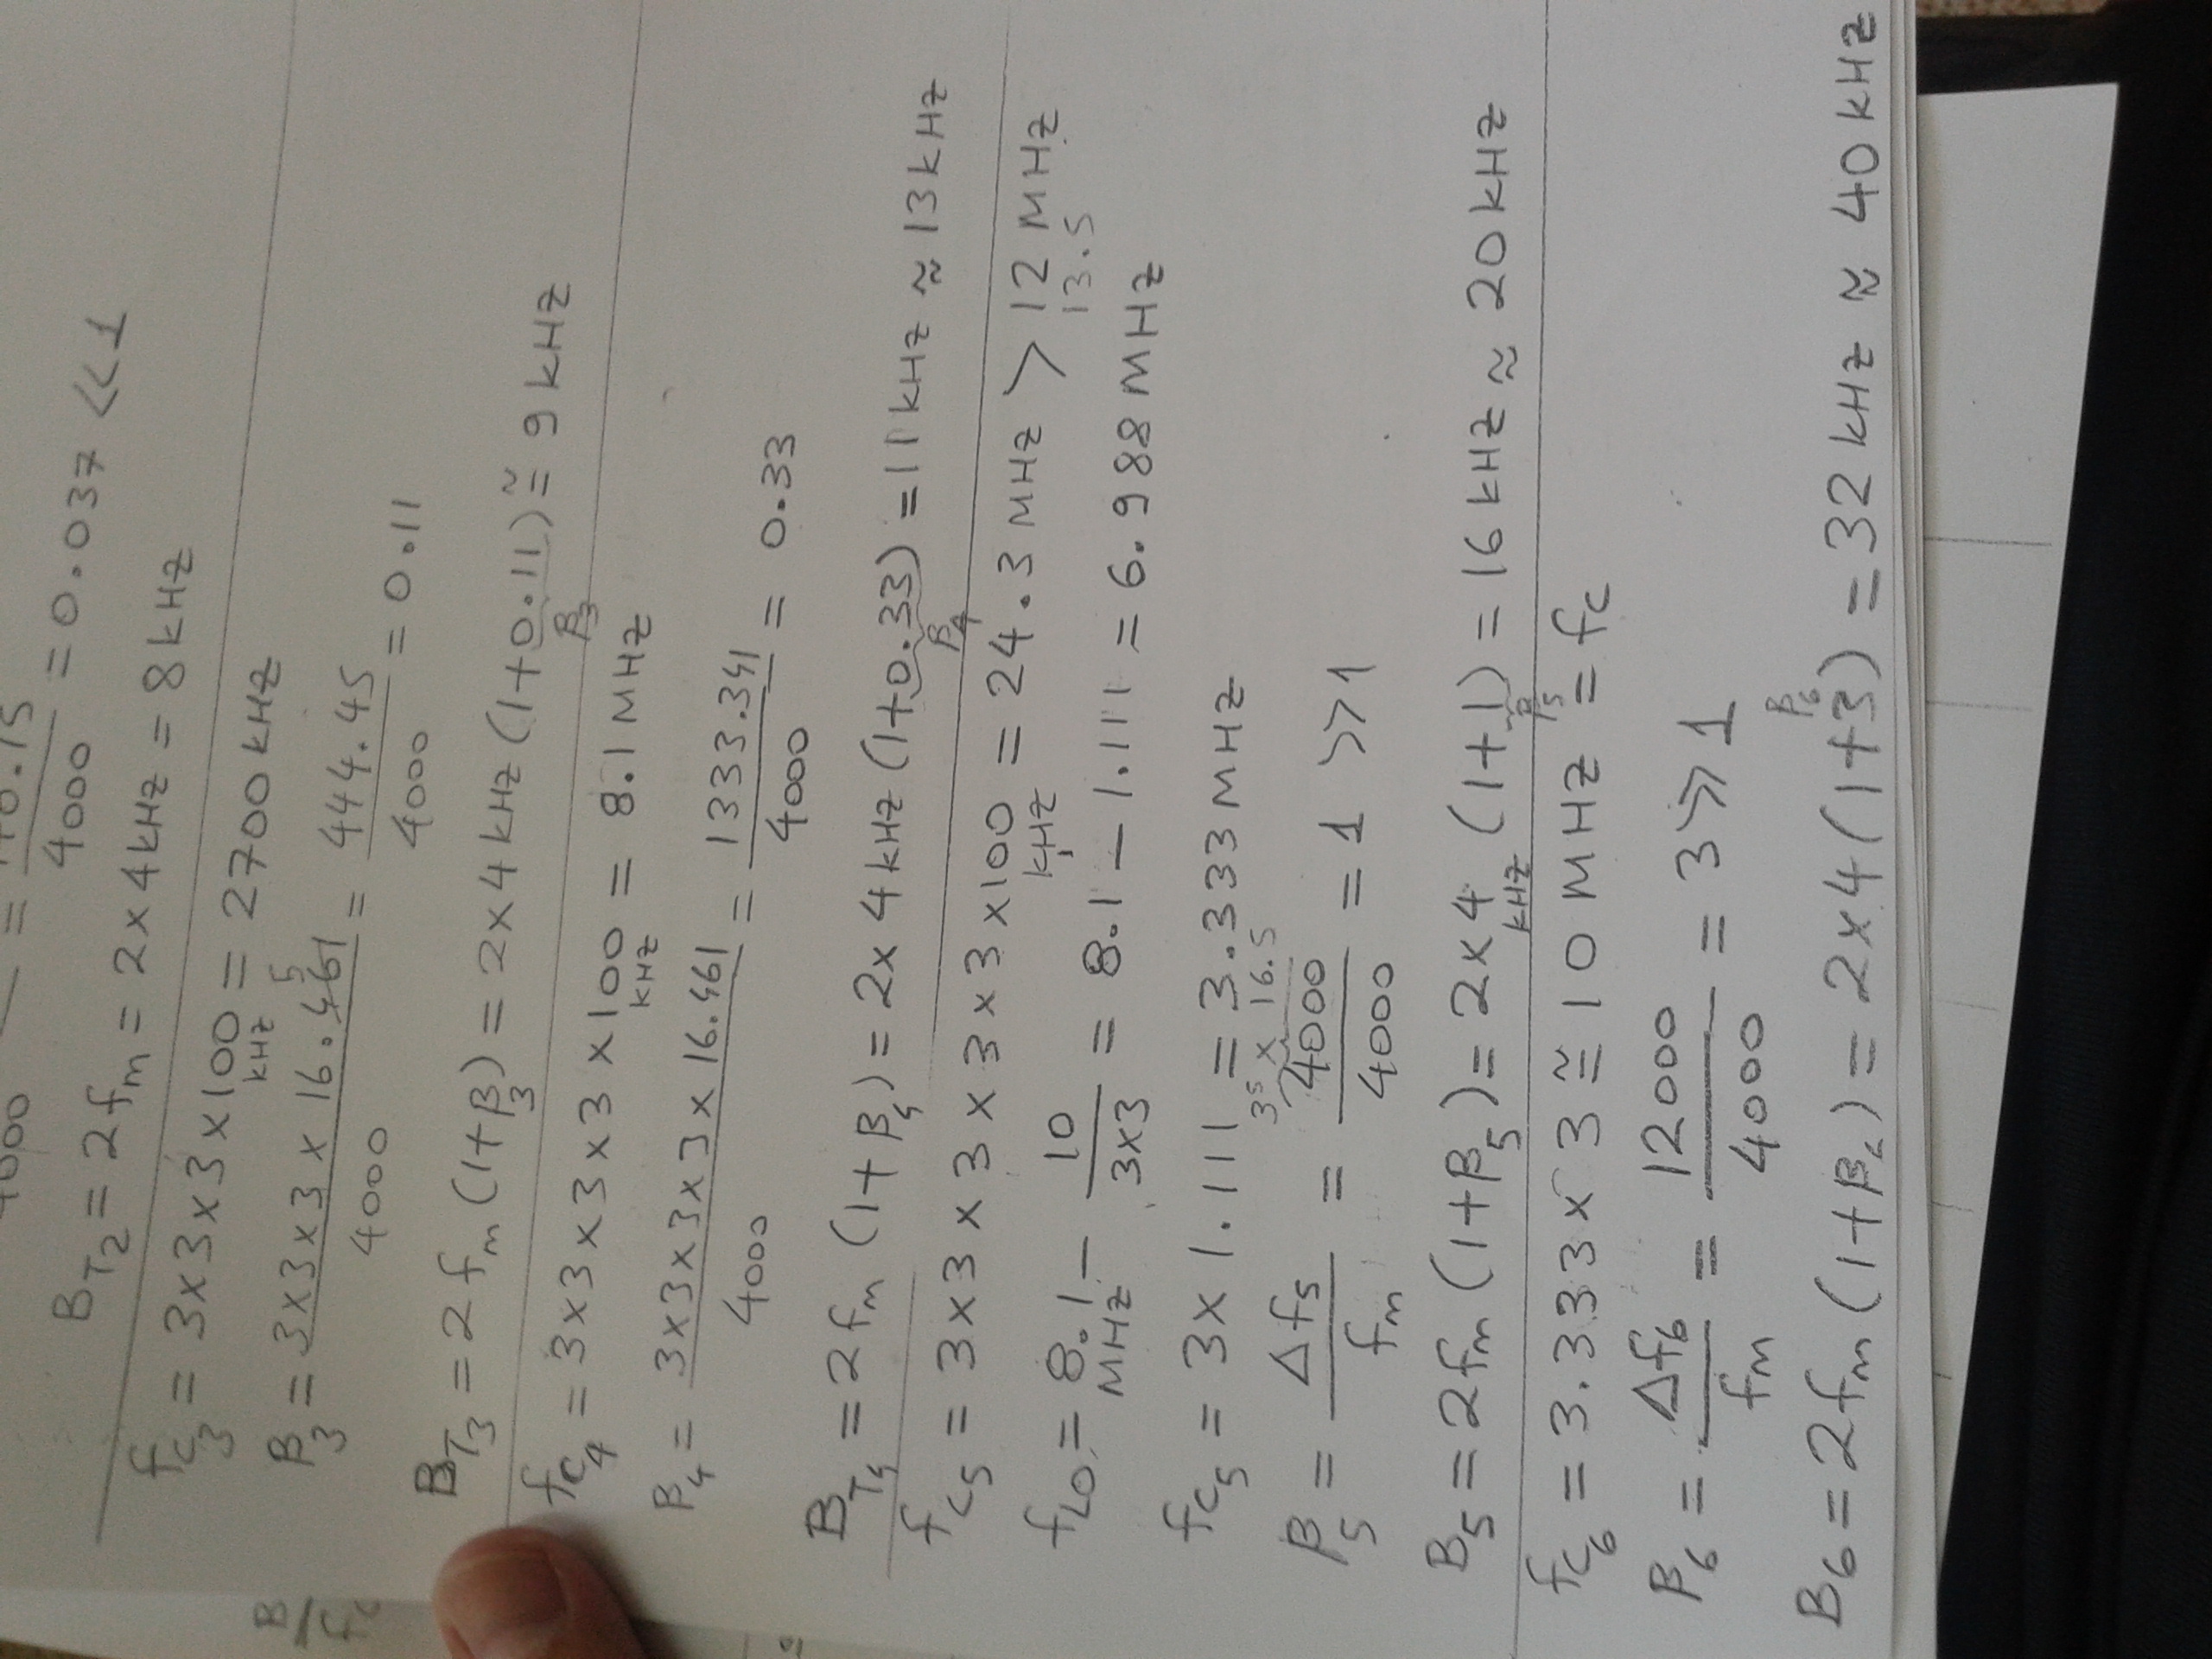 4000
= 0.037 << 1
4000
B_T2 = 2f_m = 2x4kHz = 8kHz
f_C3 = 3x3x3x100 kHz = 2700kHz
β_3 = 3x3x3x16.461 / 4000 = 444.45 / 4000 = 0.11
5
B_T3 = 2f_m(1+β_3) = 2x4kHz(1+0.11) ≅ 9kHz
β_3
f_C4 = 3x3x3x3x100 kHz = 8.1MHz
β_4 = 3x3x3x3x16.461 / 4000 = 1333.341 / 4000 = 0.33
B_T4 = 2f_m(1+β_4) = 2x4kHz(1+0.33) = 11kHz ≈ 13kHz
β_4
f_C5 = 3x3x3x3x3x100 kHz = 24.3MHz > 12MHz
13.5
f_LO = 8.1 MHz - 10 / 3x3 = 8.1 - 1.111 = 6.988MHz
f_C5 = 3x1.111 = 3.333MHz
3^5 x 16.5
β_5 = Δf_5 / f_m = 4000 / 4000 = 1 >> 1
B_5 = 2f_m(1+β_5) = 2x4 kHz (1+1) = 16kHz ≈ 20kHz
β_5
f_C6 = 3.333x3 ≅ 10MHz = f_C
β_6 = Δf_6 / f_m = 12000 / 4000 = 3 >> 1
β_6
B_6 = 2f_m(1+β_6) = 2x4(1+3) = 32kHz ≈ 40kHz
B / f_C